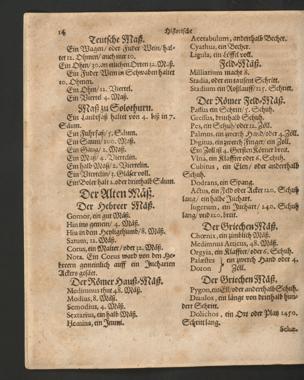 14
Historische
Teutsche Maß.
Ein Wagen/ oder Fuder Wein/ hal-
tet 12. Ohmen/ auch nur 10.
Ein Ohm/ 30. an etlichen Orten 32. Maß.
Ein Fuder Wein in Schwaben haltet
10. Ohmen.
Ein Ohm/ 12. Viertel.
Ein Viertel 4. Maß.
Maß zu Solothurn.
Ein Landfaß haltet von 4. biß in 7.
Säum.
Ein Fuhrfaß/ 5. Säum.
Ein Saum/ 100. Maß.
Ein Maß/ 4. Vierelin.
Ein halb Maß/ 2. Vierelin.
Der Alten Mäß.
Der Hebreer Mäß.
Gomor, ein gut Mäß.
Satum, 12. Mäß.
Nota. Ein Corus ward von den He-
breern gemeinlich auff ein Jucharten
Ackers gesäet.
Der Römer Hauß-Mäß.
Medimnus thut 48. Mäß.
Modius, 8. Mäß.
Semodius, 4. Mäß.
Sextarius, ein halb Mäß.
Acetabulum, anderthalb Becher.
Cyathus, ein Becher.
Ligula, ein Löffel voll.
Feld-Mäß.
Milliarium macht 8.
Stadia, oder ein tausent Schritt.
Stadium ein Roßlauff/ 125. Schritt.
Der Römer Feld-Mäß.
Passus ein Schritt/ 5. Schuh.
Gressus, dritthalb Schuh.
Pes, ein Schuh/ oder 12. Zoll.
Palmus, ein zwerch Hand/ oder 4. Zoll.
Digitus, ein zwerch Finger/ ein Zoll.
Ein Zoll ist 4. Gersten Körner breit.
Ulna, ein Klaffter oder 6. Schuh.
Cubitus, ein Elen/ oder anderthalb
Schuh.
Dodrans, ein Spang.
Actus, ein Feld oder Acker 120. Schuh
lang/ ein halbe Juchart.
Jugerum, ein Juchart/ 240. Schuh
lang und 120. breit.
Der Griechen Mäß.
Medimnus Atticus, 48. Mäß.
Orgyia, ein Klaffter/ oder 6. Schuh.
Palæstes } ein zwerch Hand oder 4.
Doron } Zoll.
Der Griechen Mäß.
Pygon, ein Ell/ oder anderthalb Schuh.
Diaulos, ein länge von dritthalb hun-
dert Schritt.
Dolichos, ein Ort oder Platz 1450.
Schritt lang.